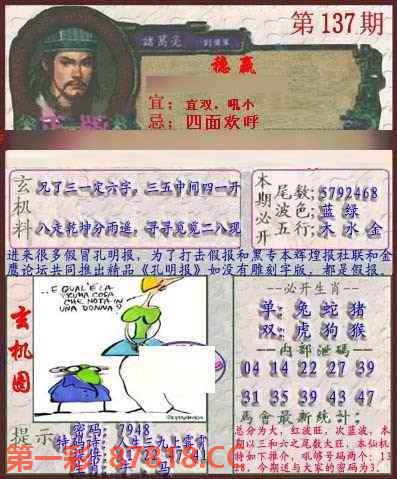 第137期
諸葛亮
穩贏
宜：宜双．吼小
忌：四面欢呼
玄机料
见了三一定六字，三五中间四一开
八走乾坤分雨遥，寻寻觅觅二八现
本期必开
尾数:5792468
波色:蓝 绿
五行:木 水 金
进来很多假冒孔明报，为了打击假报和黑专本辉煌报社联和金
鹰论坛共同推出精品《孔明报》如没有雕刻字版，都是假报．
玄机图
..E QUAL'E LA
PRIMA COSA
CHE NOTA IN
UNA DONNA?
必开生肖
单: 兔蛇猪
双: 虎狗猴
内部泄码
04 14 22 27 39
31 35 39 43 47
馬會最新統計:
总分为大，红波旺，次蓝波，本
期以三和六之尾数大旺，本仙机
特如下推介，吼够号码两个：13
28，今期送与大家的密码为3．
提示
密码: 7948
特码诗: 人生三九上雲霄
第一彩 87818.CC